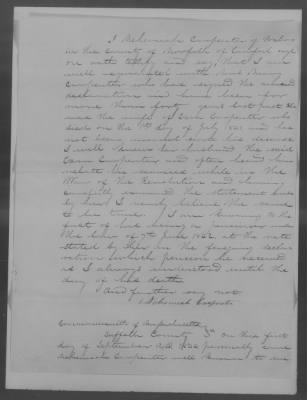 I Nehemiah Carpenter of
in the County of Norfolk of lawful age
on oath testify and say, that I am
well acquainted with Mrs Nancy
Carpenter who has signed the annexed
declaration and have been for
more than forty years last past She
was the wife of Ezra Carpenter who
died on the day of July and has
not been married since his decease
I well knew her husband the said
Ezra Carpenter and often heard him
relate his services while in the
War of the Revolution and having
carefully examined the statement made
by her I verily believe the same
to be true. I am knowing to the
fact of his being a pensioner under
the law of 7th June 1832 at the rate
stated by her in the foregoing declar
ation which pension he received
as I always understood until the
day of his death
And further say not
Nehemiah Carpenter
Commonwealth of Massachusetts
Suffolk County SS on this first
day of September A.D. personally came
Nehemiah Carpenter well known to me